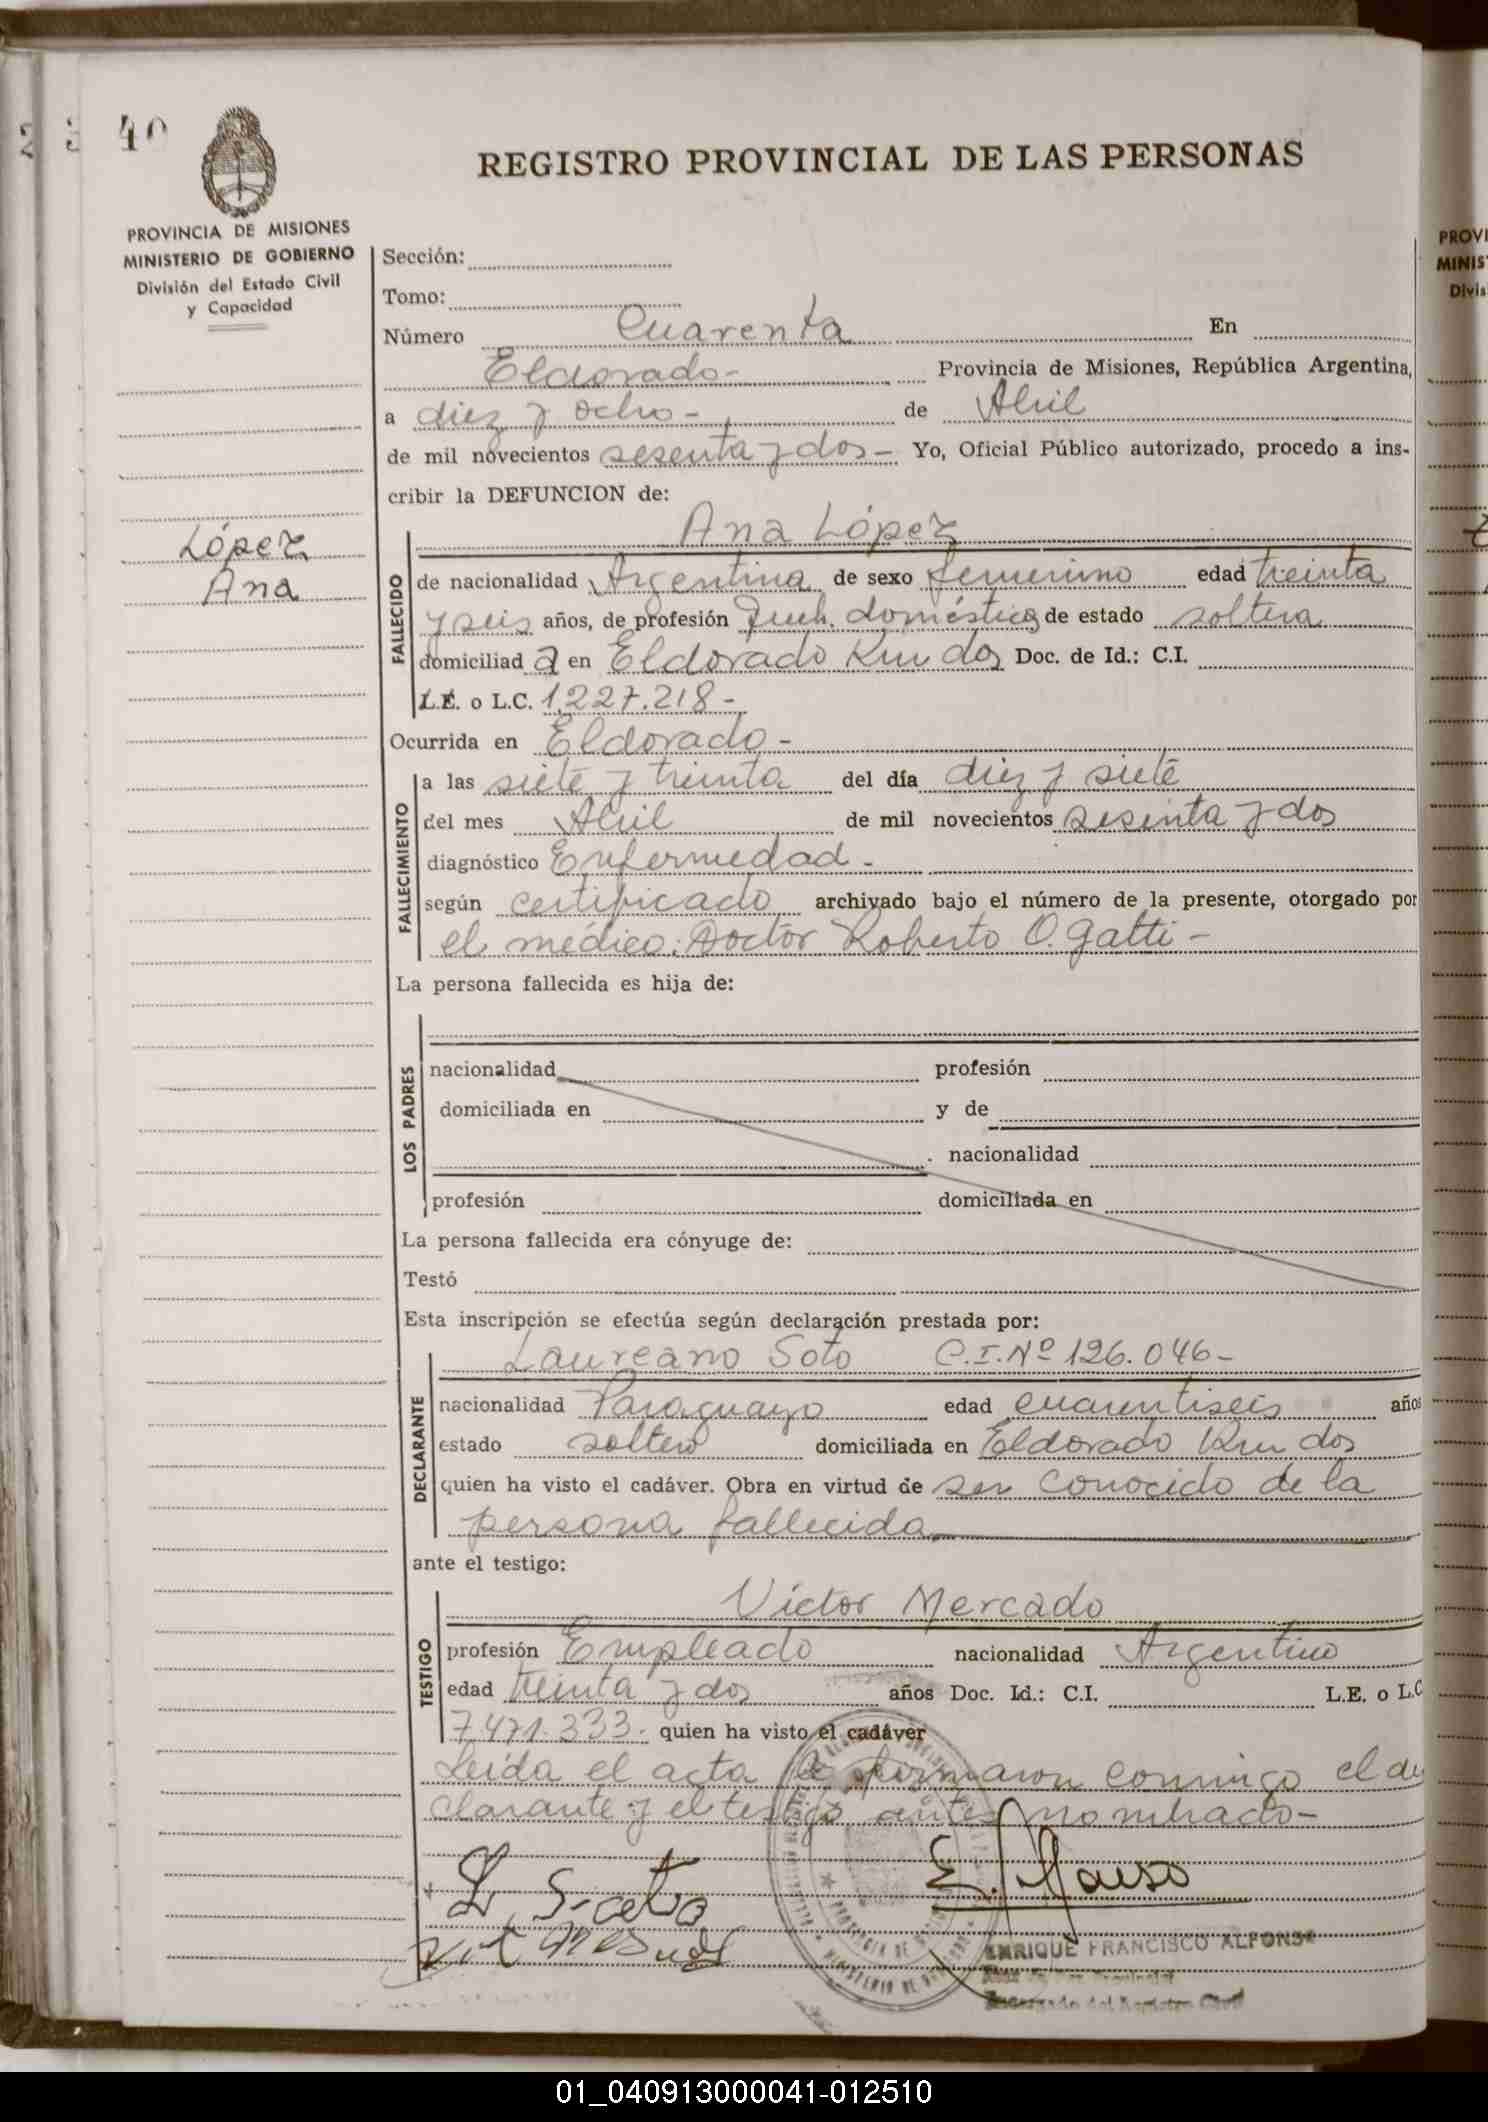 40
REGISTRO PROVINCIAL DE LAS PERSONAS
PROVINCIA DE MISIONES
MINISTERIO DE GOBIERNO
División del Estado Civil
y Capacidad
López
Ana
Sección:
Tomo:
Número Cuarenta En
Eldorado- Provincia de Misiones, República Argentina,
a diez y ocho- de Abril
de mil novecientos sesenta y dos- Yo, Oficial Público autorizado, procedo a ins-
cribir la DEFUNCION de:
Ana López
FALLECIDO
de nacionalidad Argentina de sexo femenino edad treinta
y seis años, de profesión Queh. doméstica de estado soltera
domiciliad a en Eldorado Km dos Doc. de Id.: C.I.
L.E. o L.C. 1.227.218-
Ocurrida en Eldorado-
FALLECIMIENTO
a las siete y treinta del día diez y siete
del mes Abril de mil novecientos sesenta y dos
diagnóstico Enfermedad-
según certificado archivado bajo el número de la presente, otorgado por
el médico: Doctor Roberto O. Gatti-
La persona fallecida es hija de:
LOS PADRES
nacionalidad profesión
domiciliada en y de
nacionalidad
profesión domiciliada en
La persona fallecida era cónyuge de:
Testó
Esta inscripción se efectúa según declaración prestada por:
DECLARANTE
Laureano Soto C.I. Nº 126.046-
nacionalidad Paraguayo edad cuarentiseis años
estado soltero domiciliada en Eldorado Km dos
quien ha visto el cadáver. Obra en virtud de ser conocido de la
persona fallecida
ante el testigo:
TESTIGO
Víctor Mercado
profesión Empleado nacionalidad Argentino
edad treinta y dos años Doc. Id.: C.I. L.E. o L.C
7.471.333- quien ha visto el cadáver
Leída el acta la firmaron conmigo el de
clarante y el testigo antes nombrado-
E. Alfonso
ENRIQUE FRANCISCO ALFONSO
Encargado del Registro Civil
PROVINCIA DE
MINISTERIO DE
PROVI
MINIS
Divis
01_040913000041-012510